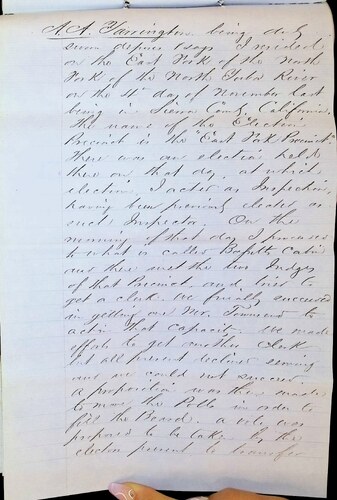 A. A. Farrington, being duly
sworn deposes & says I resided
on the East Fork of the North
Fork of the North Yuba River
on the 4th day of November last
being in Sierra County California.
The name of the Election
Precinct is the "East Fork Precinct"
There was an election held
there on that day, at which
election I acted as Inspector,
having been previously elected as
such Inspector. On the
morning of that day I proceeded
to what is called Cabin
and there met the two Judges
of that Precinct and tried to
get a clerk. We finally succeeded
in getting one Mr. Townsend to
act in that capacity. We made
efforts to get another Clerk
but all present declined serving
and we could not succeed.
a proposition was then made
to move the Polls in order to
fill the Board. a vote was
proposed to be taken by the
electors present to transfer